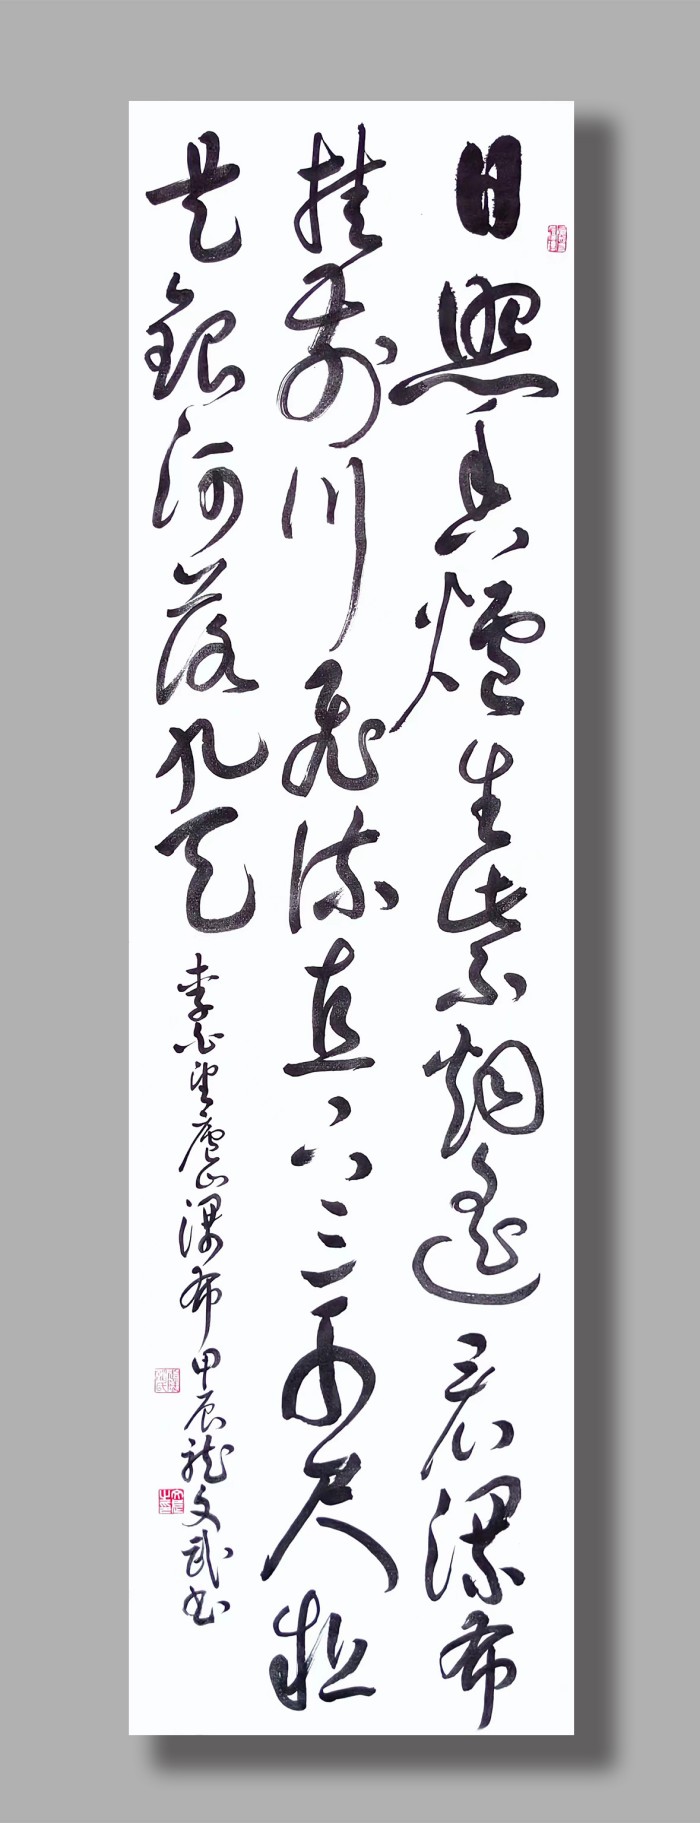 日照香爐生紫烟遙看瀑布
挂前川飛流直下三千尺疑
是銀河落九天
李白望廬山瀑布甲辰龍文武书